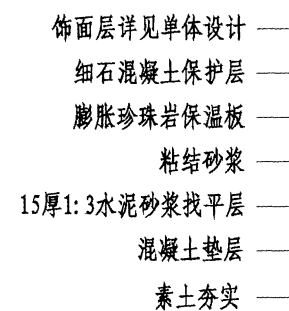 饰面层详见单体设计
细石混凝土保护层
膨胀珍珠岩保温板
粘结砂浆
15厚1:3水泥砂浆找平层
混凝土垫层
素土夯实